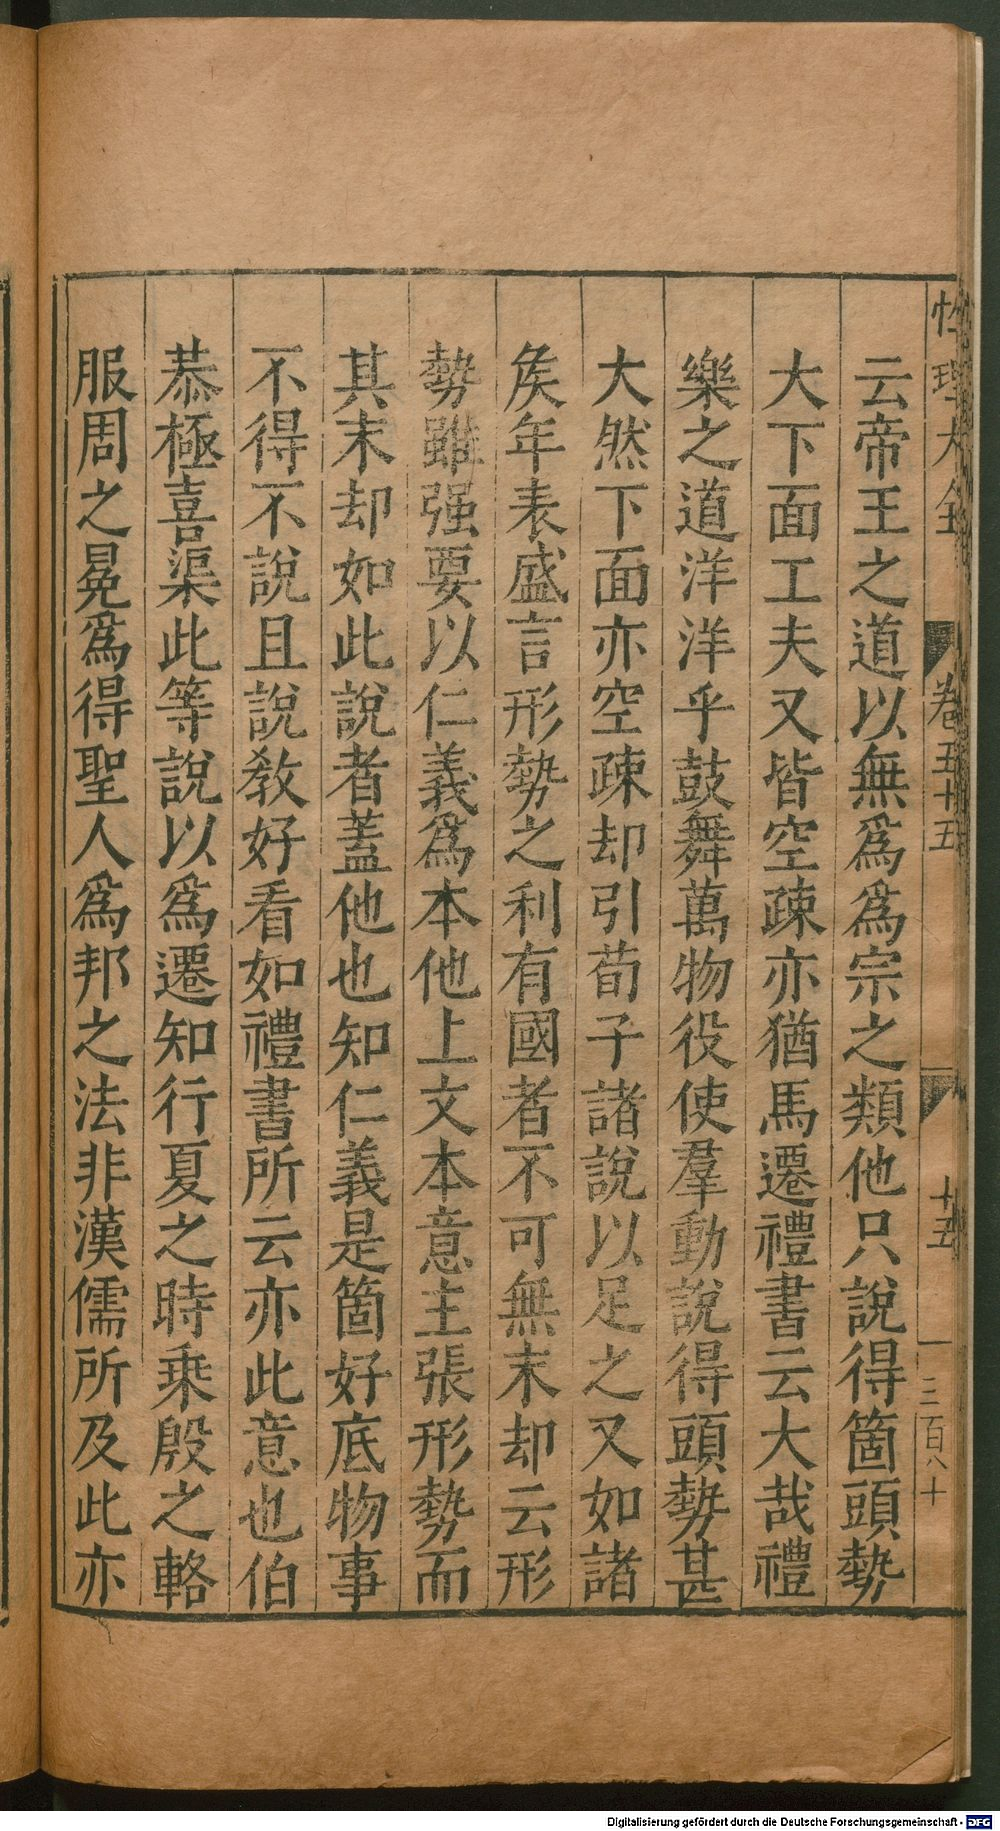 性理大全 卷五十五 十五 三百八十
云帝王之道以無爲爲宗之類他只說得箇頭勢
大下面工夫又皆空疎亦猶馬遷禮書云大哉禮
樂之道洋洋乎鼓舞萬物役使羣動說得頭勢甚
大然下面亦空疎却引荀子諸說以足之又如諸
矦年表盛言形勢之利有國者不可無末却云形
勢雖强要以仁義爲本他上文本意主張形勢而
其末却如此說者蓋他也知仁義是箇好底物事
不得不說且說敎好看如禮書所云亦此意也伯
恭極喜渠此等說以爲遷知行夏之時乘殷之輅
服周之冕爲得聖人爲邦之法非漢儒所及此亦
Digitalisierung gefördert durch die Deutsche Forschungsgemeinschaft - DFG